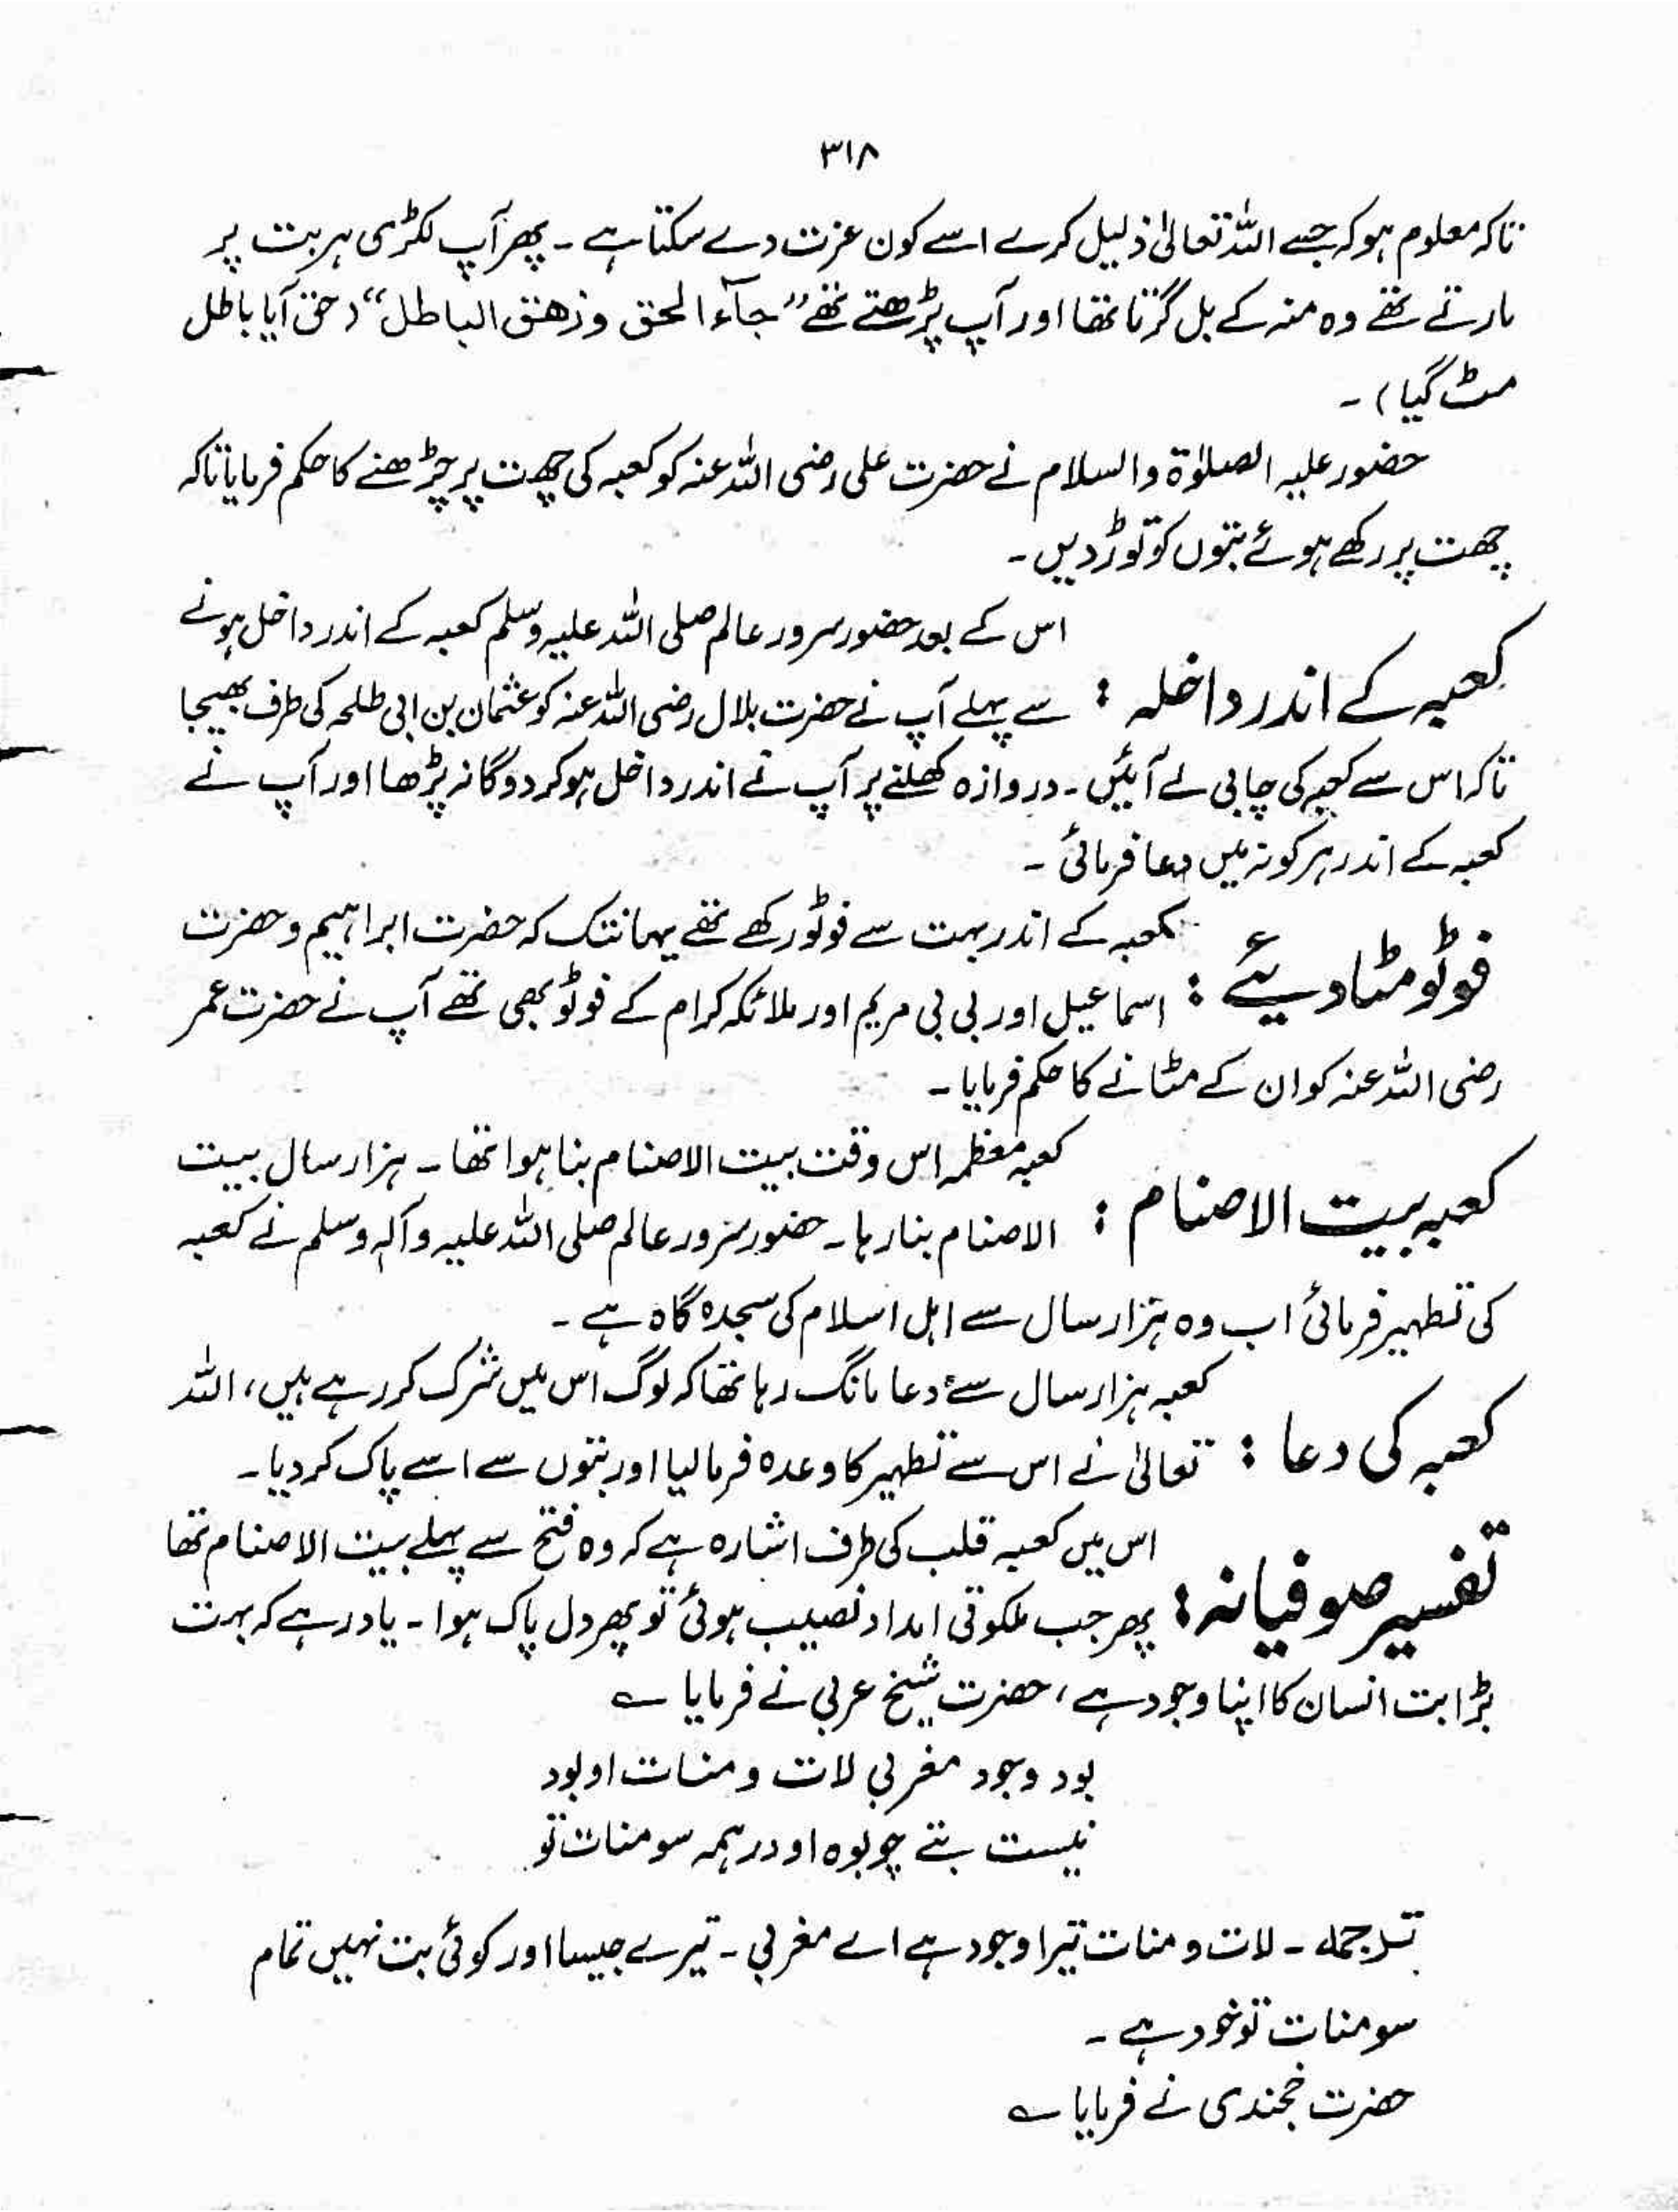 ۳۱۸
تاکہ معلوم ہو کہ جسے اللہ تعالیٰ ذلیل کرے اسے کون عزت دے سکتا ہے ۔ پھر آپ لکڑی ہر بت پر
مارتے تھے وہ منہ کے بل گرتا تھا اور آپ پڑھتے تھے ”جآء الحق وزھق الباطل“ (حق آیا باطل
مٹ گیا) ۔
حضور علیہ الصلوٰۃ والسلام نے حضرت علی رضی اللہ عنہ کو کعبہ کی چھت پر چڑھنے کا حکم فرمایا تاکہ
چھت پر رکھے ہوئے بتوں کو توڑ دیں ۔
کعبہ کے اندر داخلہ : اس کے بعد حضور سرور عالم صلی اللہ علیہ وسلم کعبہ کے اندر داخل ہونے
سے پہلے آپ نے حضرت بلال رضی اللہ عنہ کو عثمان بن ابی طلحہ کی طرف بھیجا
تاکہ اس سے کعبہ کی چابی لے آئیں ۔ دروازہ کھلنے پر آپ نے اندر داخل ہو کر دوگانہ پڑھا اور آپ نے
کعبہ کے اندر ہر کونہ میں دعا فرمائی ۔
فوٹو مٹا دیئے : کعبہ کے اندر بہت سے فوٹو رکھے تھے یہانتک کہ حضرت ابراہیم و حضرت
اسماعیل اور بی بی مریم اور ملائکہ کرام کے فوٹو بھی تھے آپ نے حضرت عمر
رضی اللہ عنہ کو ان کے مٹانے کا حکم فرمایا ۔
کعبہ بیت الاصنام : کعبہ معظمہ اس وقت بیت الاصنام بنا ہوا تھا ۔ ہزار سال بیت
الاصنام بنا رہا ۔ حضور سرور عالم صلی اللہ علیہ وآلہ وسلم نے کعبہ
کی تطہیر فرمائی اب وہ ہزار سال سے اہل اسلام کی سجدہ گاہ ہے ۔
کعبہ کی دعا : کعبہ ہزار سال سے دعا مانگ رہا تھا کہ لوگ اس میں شرک کر رہے ہیں، اللہ
تعالیٰ نے اس سے تطہیر کا وعدہ فرما لیا اور بتوں سے اسے پاک کر دیا ۔
تفسیر صوفیانہ : اس میں کعبہ قلب کی طرف اشارہ ہے کہ وہ فتح سے پہلے بیت الاصنام تھا
پھر جب ملکوتی امداد نصیب ہوئی تو پھر دل پاک ہوا ۔ یاد رہے کہ بہت
بڑا بت انسان کا اپنا وجود ہے ، حضرت شیخ عربی نے فرمایا ؎
بود وجود مغربی لات و منات او بود
نیست بتے چو بوہ او در ہمہ سومنات تو
ترجمہ ۔ لات و منات تیرا وجود ہے اے مغربی ۔ تیرے جیسا اور کوئی بت نہیں تمام
سومنات تو خود ہے ۔
حضرت خجندی نے فرمایا ؎